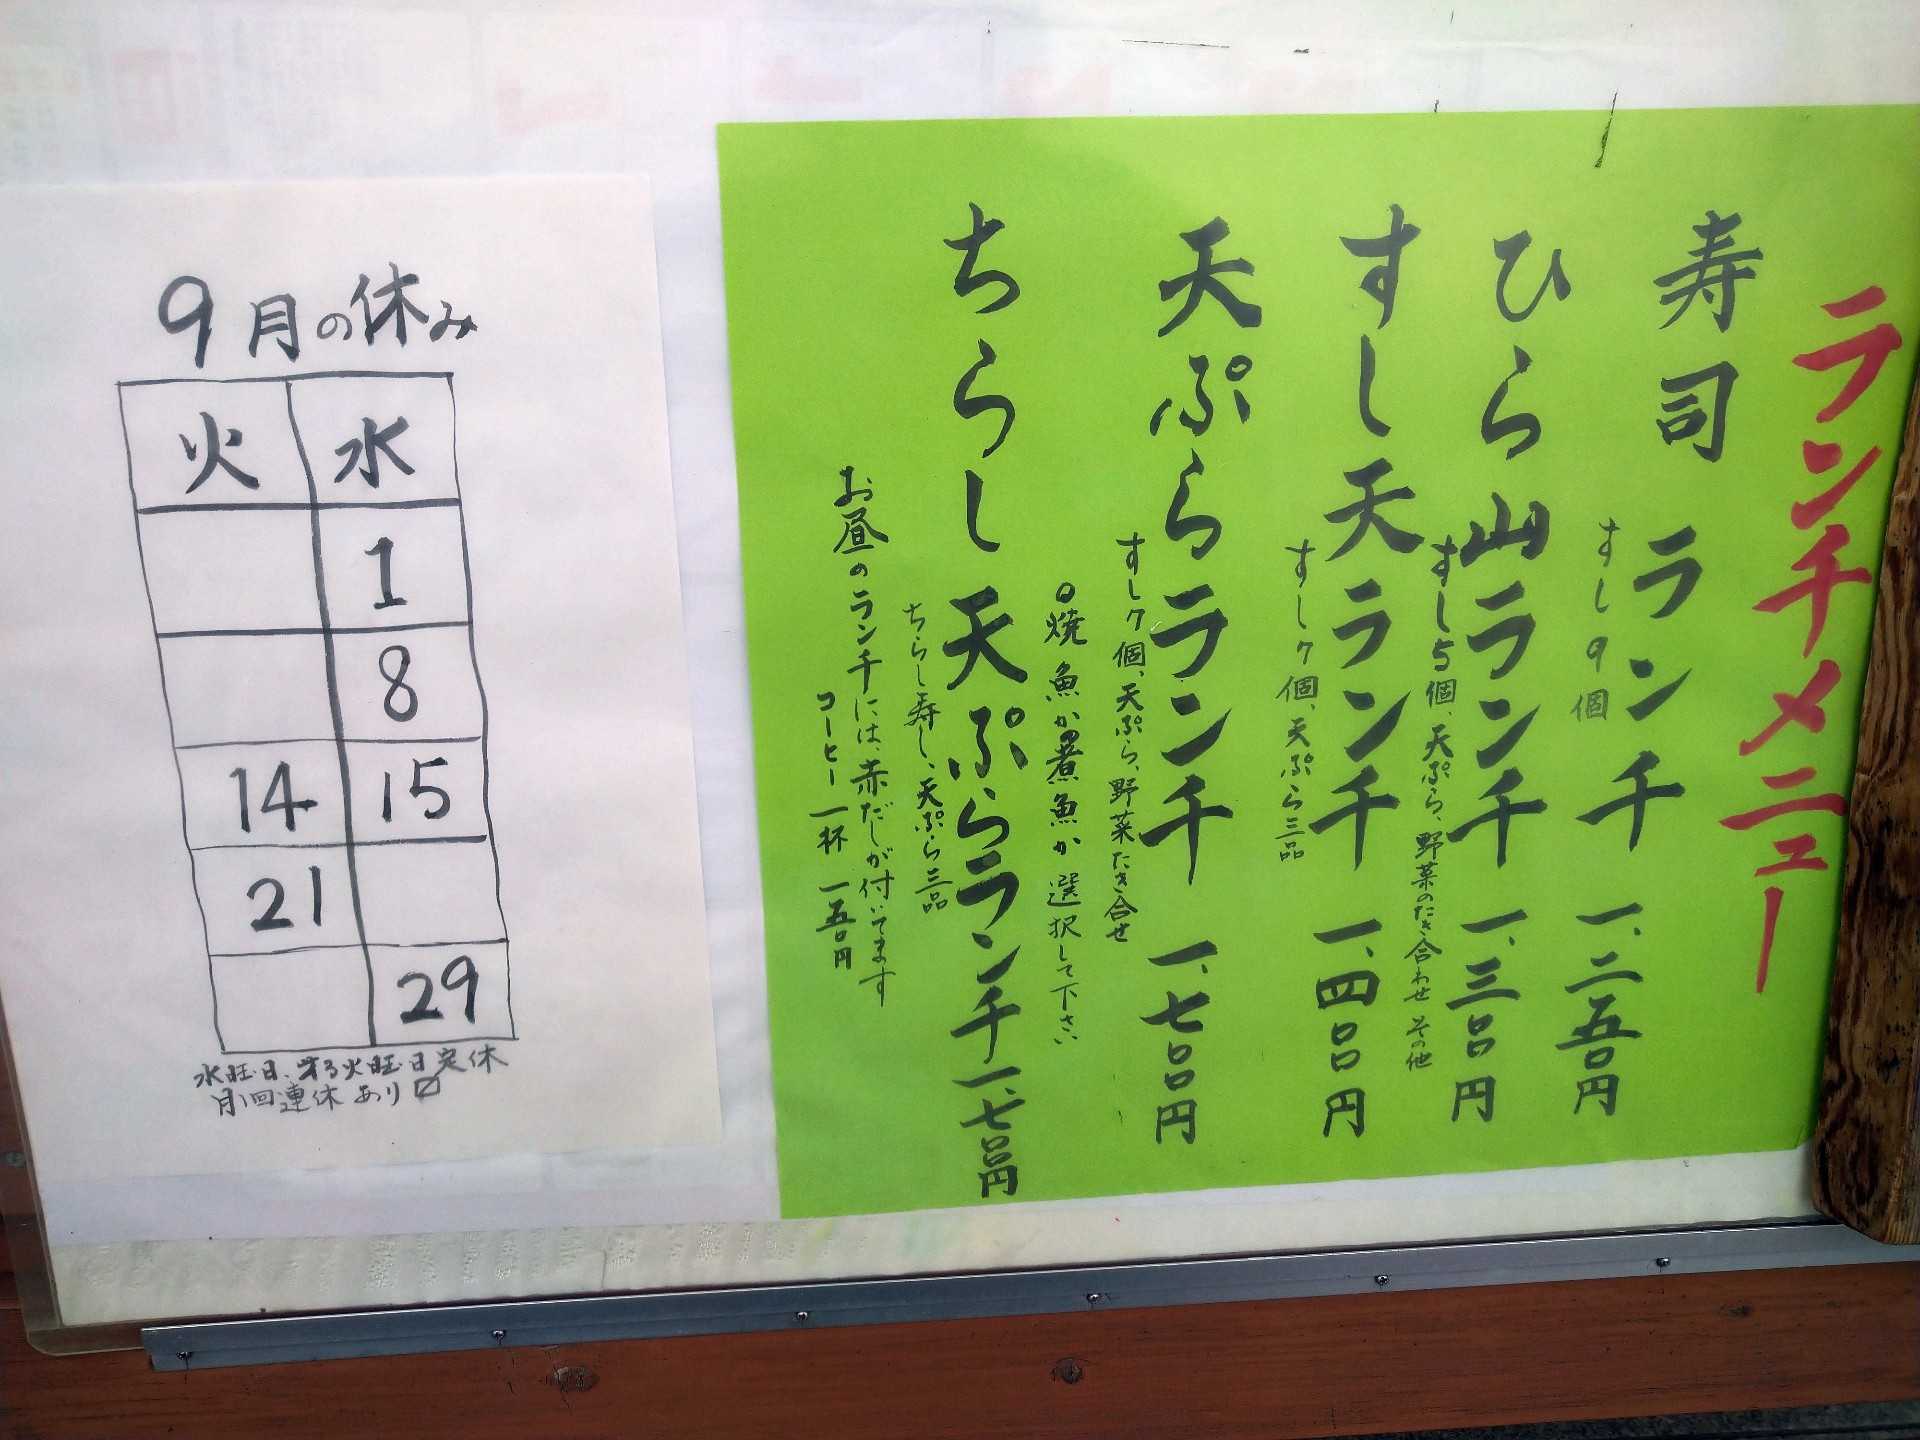 ランチメニュー
寿司ランチ 一、二五〇円
すし9個
ひら山ランチ 一、三〇〇円
すし5個、天ぷら、野菜のたき合わせ その他
すし天ランチ 一、四〇〇円
すし7個、天ぷら三品
天ぷらランチ 一、七〇〇円
すし7個、天ぷら、野菜たき合せ
〇焼魚か煮魚か選択して下さい
ちらし天ぷらランチ 一、七〇〇円
ちらし寿し、天ぷら三品
お昼のランチには、赤だしが付いてます
コーヒー一杯 一五〇円
9月の休み
火 水
1
8
14 15
21
29
水曜日、第3火曜日定休
月1回連休あり